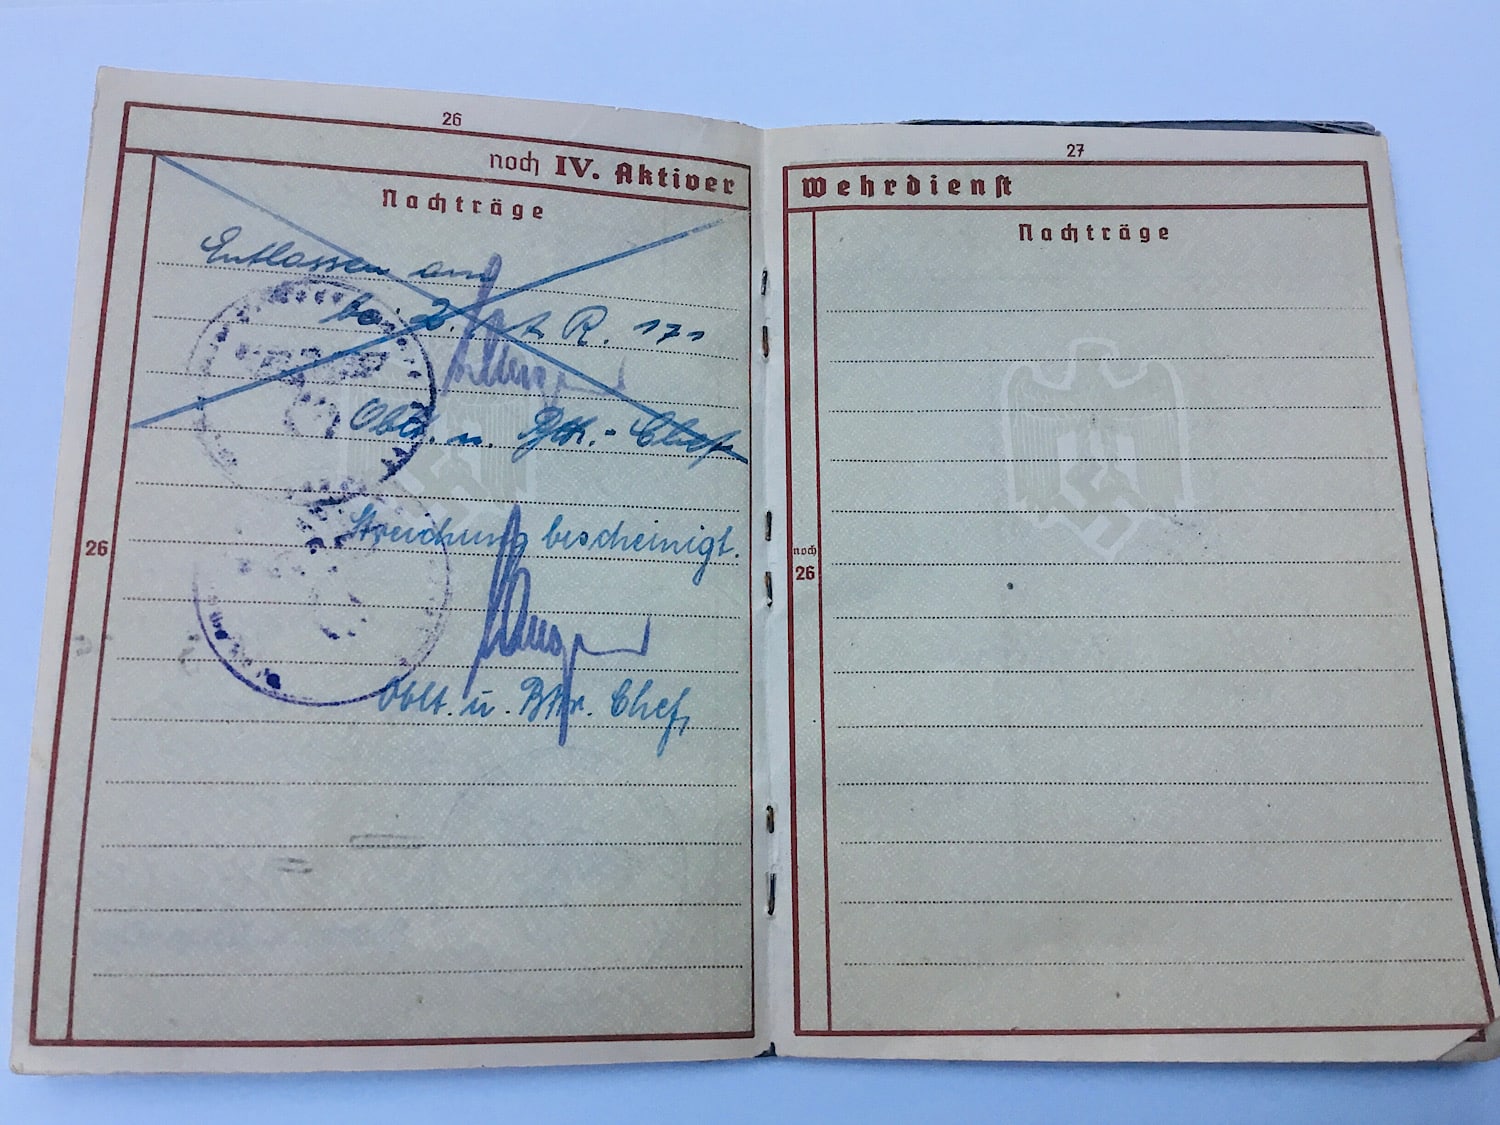 26
noch IV. Aktiver
Nachträge
Entlassen am
bei 2. A. R. 171
Oblt. u. Bttr.-Chef
Streichung bescheinigt.
Oblt. u. Bttr. Chef,
26
27
Wehrdienst
Nachträge
noch
26